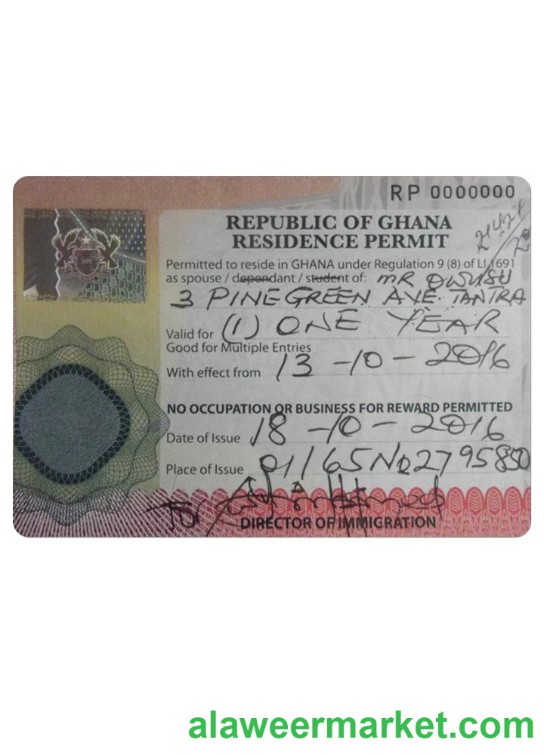 RP 0000000
REPUBLIC OF GHANA
RESIDENCE PERMIT
Permitted to reside in GHANA under Regulation 9 (8) of LI 1691
as spouse / dependant / student of: MR OWUSU
3 PINEGREEN AVE. TANTRA
Valid for (1) ONE YEAR
Good for Multiple Entries
With effect from 13-10-2016
NO OCCUPATION OR BUSINESS FOR REWARD PERMITTED
Date of Issue 18-10-2016
Place of Issue
DIRECTOR OF IMMIGRATION
alaweermarket.com